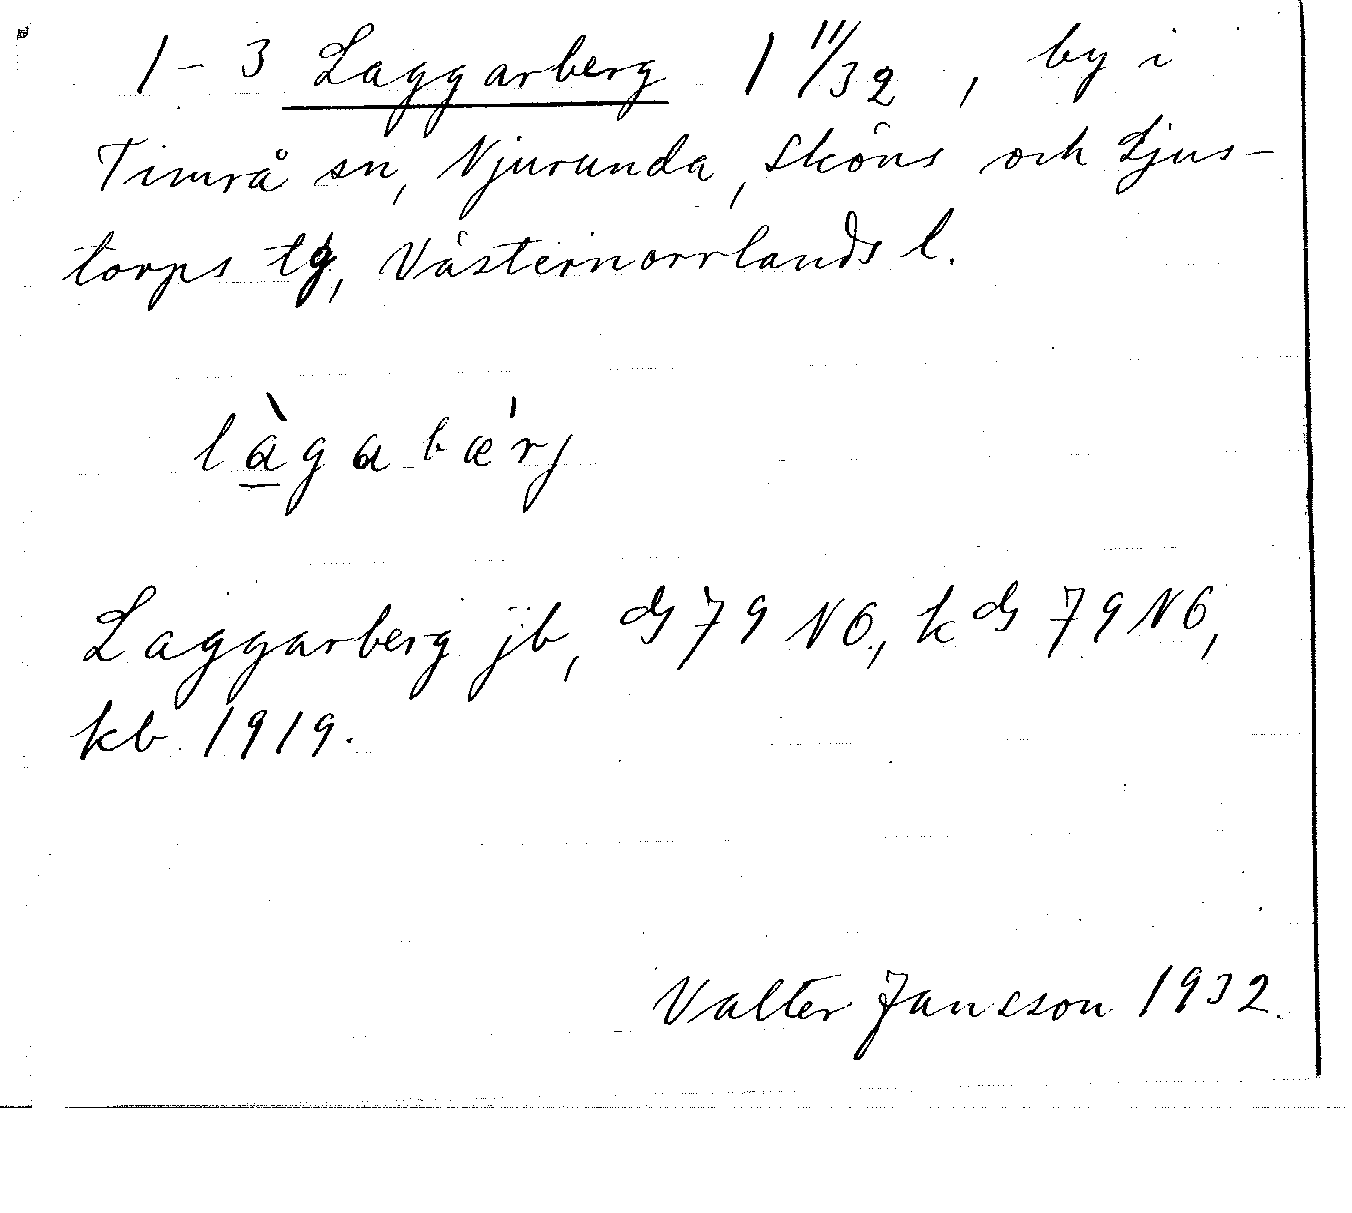 1-3 Laggarberg 1 11/32, by i
Timrå sn, Njurunda, Sköns och Ljus-
torps tg, Västernorrlands l.
làgabæ'rj
Laggarberg jb, ds 79 NO., k ds 79 NO,
kb 1919.
Valter Jansson 1932.